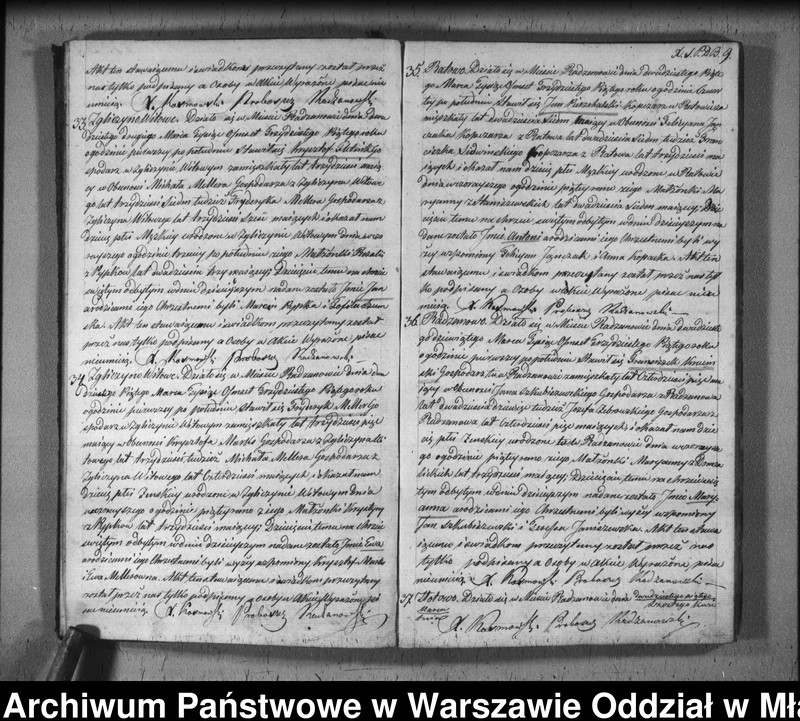 Akt ten stawającemu i świadkom przeczytany został przez
nas tylko podpisany a Osoby w Akcie Wyrażone pisać nie
umieją. X. Rosmowski Proboszcz Radzanowski
33. Zgliczyno Witowe. Działo się w Mieście Radzanowie dnia Dwu
dziestego drugiego Marca Tysiąc Ośmset Trzydziestego Piątego roku
ogodzinie pierwszy po południu Stawił się Krzysztof
spodarz w Zgliczynie Witowym zamieszkały lat trzydzieści mają
cy w Obecności Michała Mellera Gospodarza z Zgliczyna Witowe
go lat trzydzieści siedm tudzież Frydryka Mellera Gospodarza z
Zgliczyna Witowego lat trzydzieści sześć mających i okazał nam
Dziecię płci Męskiey urodzone w Zgliczynie Witowym dnia wczo
rayszego ogodzinie trzeciey po południu z iego Małżonki Rozalii
z Rypków lat dwadzieścia trzy maiącey; Dziecięciu temu na chrzcie
świętym odbytym w dniu dzisieyszym nadane zostało Imie Jan
a rodzicami iego Chrzestnemi byli Marcin Rypka i Zofia
Akt ten stawaiącemu i świadkom przeczytany został
przez nas tylko podpisany a Osoby w Akcie Wyrażone pisać
nieumieią. X. Rosmowski Proboszcz Radzanowski
34. Zgliczyno Witowe. Działo się w Mieście Radzanowie dnia dwu
dziestego Piątego Marca Tysiąc Ośmset Trzydziestego Piątego roku
ogodzinie pierwszy po południu Stawił się Frydryk Meller Go
spodarz w Zgliczynie Witowym zamieszkały lat trzydzieści pięć
maiący w Obecności Krzysztofa Marks Gospodarza z Zgliczyna Wi
towego lat trzydzieści tudzież Michała Mellera Gospodarza z
Zgliczyna Witowego lat Czterdzieści maiących i okazał nam
Dziecię płci Żeńskiey urodzone w Zgliczynie Witowym dnia
wczorayszego ogodzinie piątey rano z iego Małżonki Krystyny
z Rypków lat trzydzieści maiącey; Dziecięciu temu na chrzcie
świętym odbytym w dniu dzisieyszym nadane zostało Imie Ewa
a rodzicami iego Chrzestnemi byli wyżey wspomniony Krzysztof Marks
i Ewa Mellerowna. Akt ten stawaiącemu i świadkom przeczytany
został przez nas tylko podpisany a Osoby w Akcie Wyrażone pi
sać nieumieią. X. Rosmowski Proboszcz Radzanowski
9.
35. Ratowo. Działo się w Mieście Radzanowie dnia dwudziestego Piąte
go Marca Tysiąc Ośmset Trzydziestego Piątego roku ogodzinie Czwar
ty po południu Stawił się Jan
mieszkały lat dwadzieścia siedm maiący w Obecności
z Ratowa lat dwadzieścia siedm tudzież Fran
ciszka z Ratowa lat trzydzieści ma
iących i okazał nam dziecię płci Męskiey urodzone w Ratowie
dnia wczorayszego ogodzinie piątey rano z iego Małżonki Ma
ryanny z Staniszewskich lat dwadzieścia siedm maiącey; Dzie
cięciu temu na chrzcie świętym odbytym w dniu dzisieyszym na
dane zostało Imie Antoni a rodzicami iego Chrzestnemi byli wy
żey wspomniony i Anna Akt ten
stawaiącemu i świadkom przeczytany został przez nas tyl
ko podpisany a Osoby w Akcie Wymienione pisać nieu
mieią. X. Rosmowski Proboszcz Radzanowski
36. Radzanowo. Działo się w Mieście Radzanowie dnia dwudzieste
go dziewiątego Marca Tysiąc Ośmset Trzydziestego Piątego roku
ogodzinie pierwszy po południu Stawił się Franciszek
Gospodarz w Radzanowie zamieszkały lat Czterdzieści pięć ma
iący w Obecności Jana Szkubiszewskiego Gospodarza z Radzanowa
lat dwadzieścia dziewięć tudzież Józefa Gospodarza z
Radzanowa lat Czterdzieści pięć maiących i okazał nam dzie
cię płci Żeńskiey urodzone w Radzanowie dnia wczorays
zego ogodzinie piątey rano z iego Małżonki Maryanny
lat trzydzieści maiącey; Dziecięciu temu na chrzcie świę
tym odbytym w dniu dzisieyszym nadane zostało Imie Mary
anna a rodzicami iego Chrzestnemi byli wyżey wspomniony
Jan Szkubiszewski i Akt ten stawa
iącemu i świadkom przeczytany został przez nas
tylko podpisany a Osoby w Akcie Wyrażone pisać
nieumieią. X. Rosmowski Proboszcz Radzanowski
37. Działo się w Mieście Radzanowie dnia dwudziestego
Marca
X. Rosmowski Proboszcz Radzanowski
Archiwum Państwowe w Warszawie Oddział w Mła